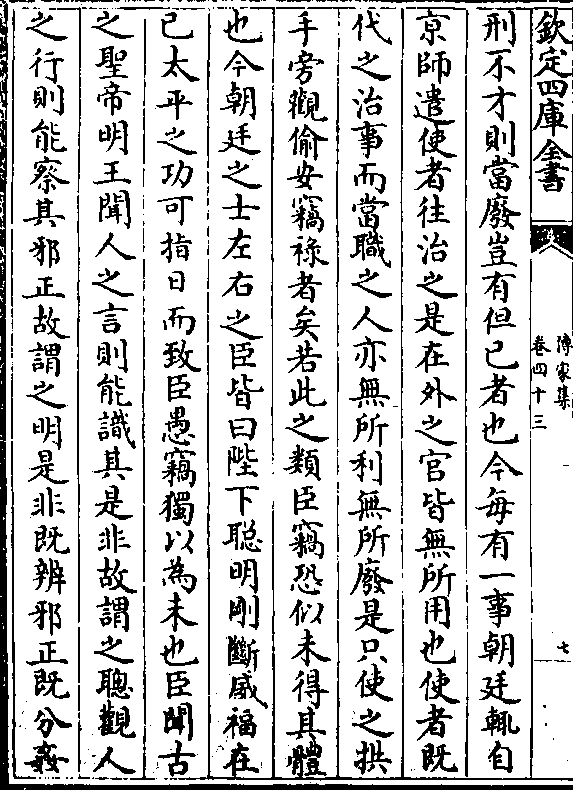 欽定四庫全書
傳家集
卷四十三
七
刑不才則當廢豈有但已者也今每有一事朝廷輒自
京師遣使者往治之是在外之官皆無所用也使者既
代之治事而當職之人亦無所利無所廢是只使之拱
手旁觀偷安竊祿者矣若此之類臣竊恐似未得其體
也今朝廷之士左右之臣皆曰陛下聰明剛斷威福在
已太平之功可指日而致臣愚竊獨以為未也臣聞古
之聖帝明王聞人之言則能識其是非故謂之聰觀人
之行則能察其邪正故謂之明是非既辨邪正既分姦